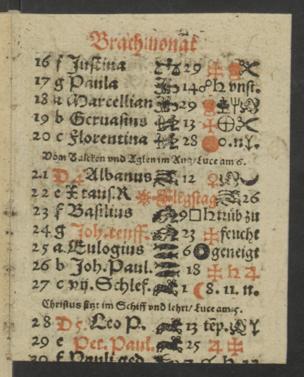 Brachmonat
16 f Justina 29
17 g Paula 14 ☍ ♄ vnst.
18 a Marcellian 29
19 b Geruasius 13
20 c Florentina 28 0. n.
Vom Balcken vnd Aglen im Aug/ Luce am 6.
21 D Albanus 12 ♀
22 e X taus. R 26
23 f Basilius 9 □ ♄ trüb zu
24 g Joh. teuff. 23 feucht
25 a Eulogius 6 geneigt
26 b Joh. Paul. 18 ♄ ♃
27 c vij. Schlef. 1 8. 11. n.
Christus sitzt im Schiff vnd lehrt/ Luce am 5.
28 D Leo P. 13 tēp.
29 e Pet. Paul. 25 ♃
30 f Pauli ged